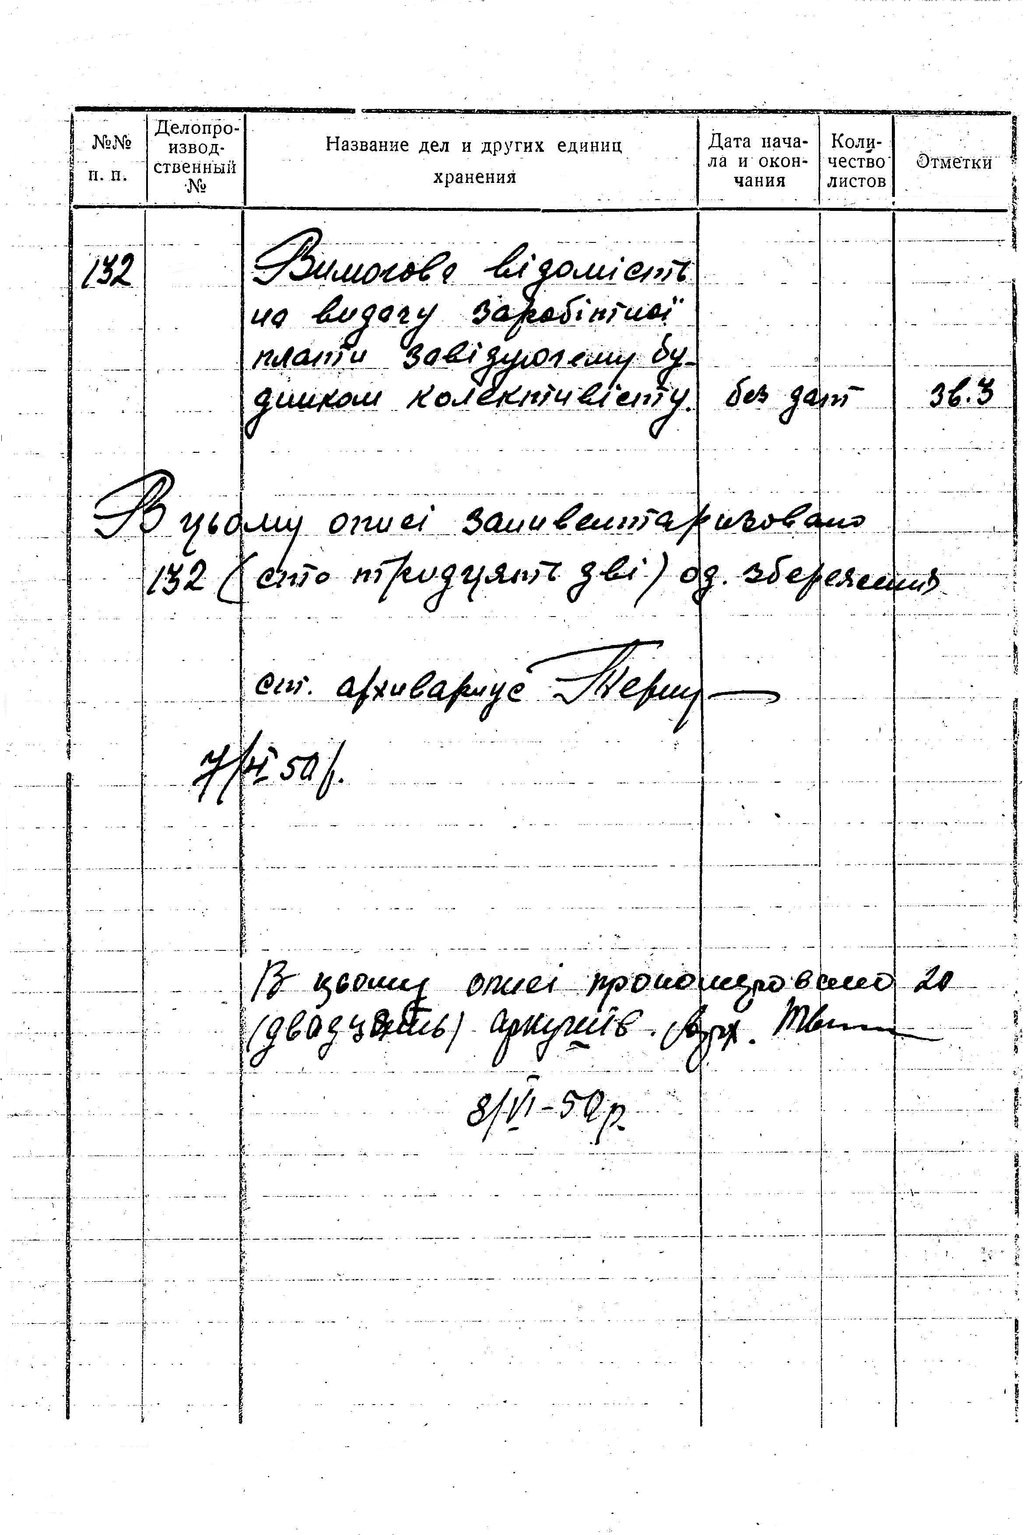 №№ п. п.
Делопроизвод-ственный №
Название дел и других единиц хранения
Дата нача-ла и окон-чания
Коли-чество листов
Отметки
132
Вимогова відомість
на видачу заробітної
плати завідуючему бу-
динком колективісту. без дат зв. 3
В цьому описі заінвентаризовано
132 (сто тридцять дві) од. збереження
ст. архиваріус
7/VI 50 р.
В цьому описі прономеровано 20
(двадцять) аркушів. Арх.
8/VI-50 р.